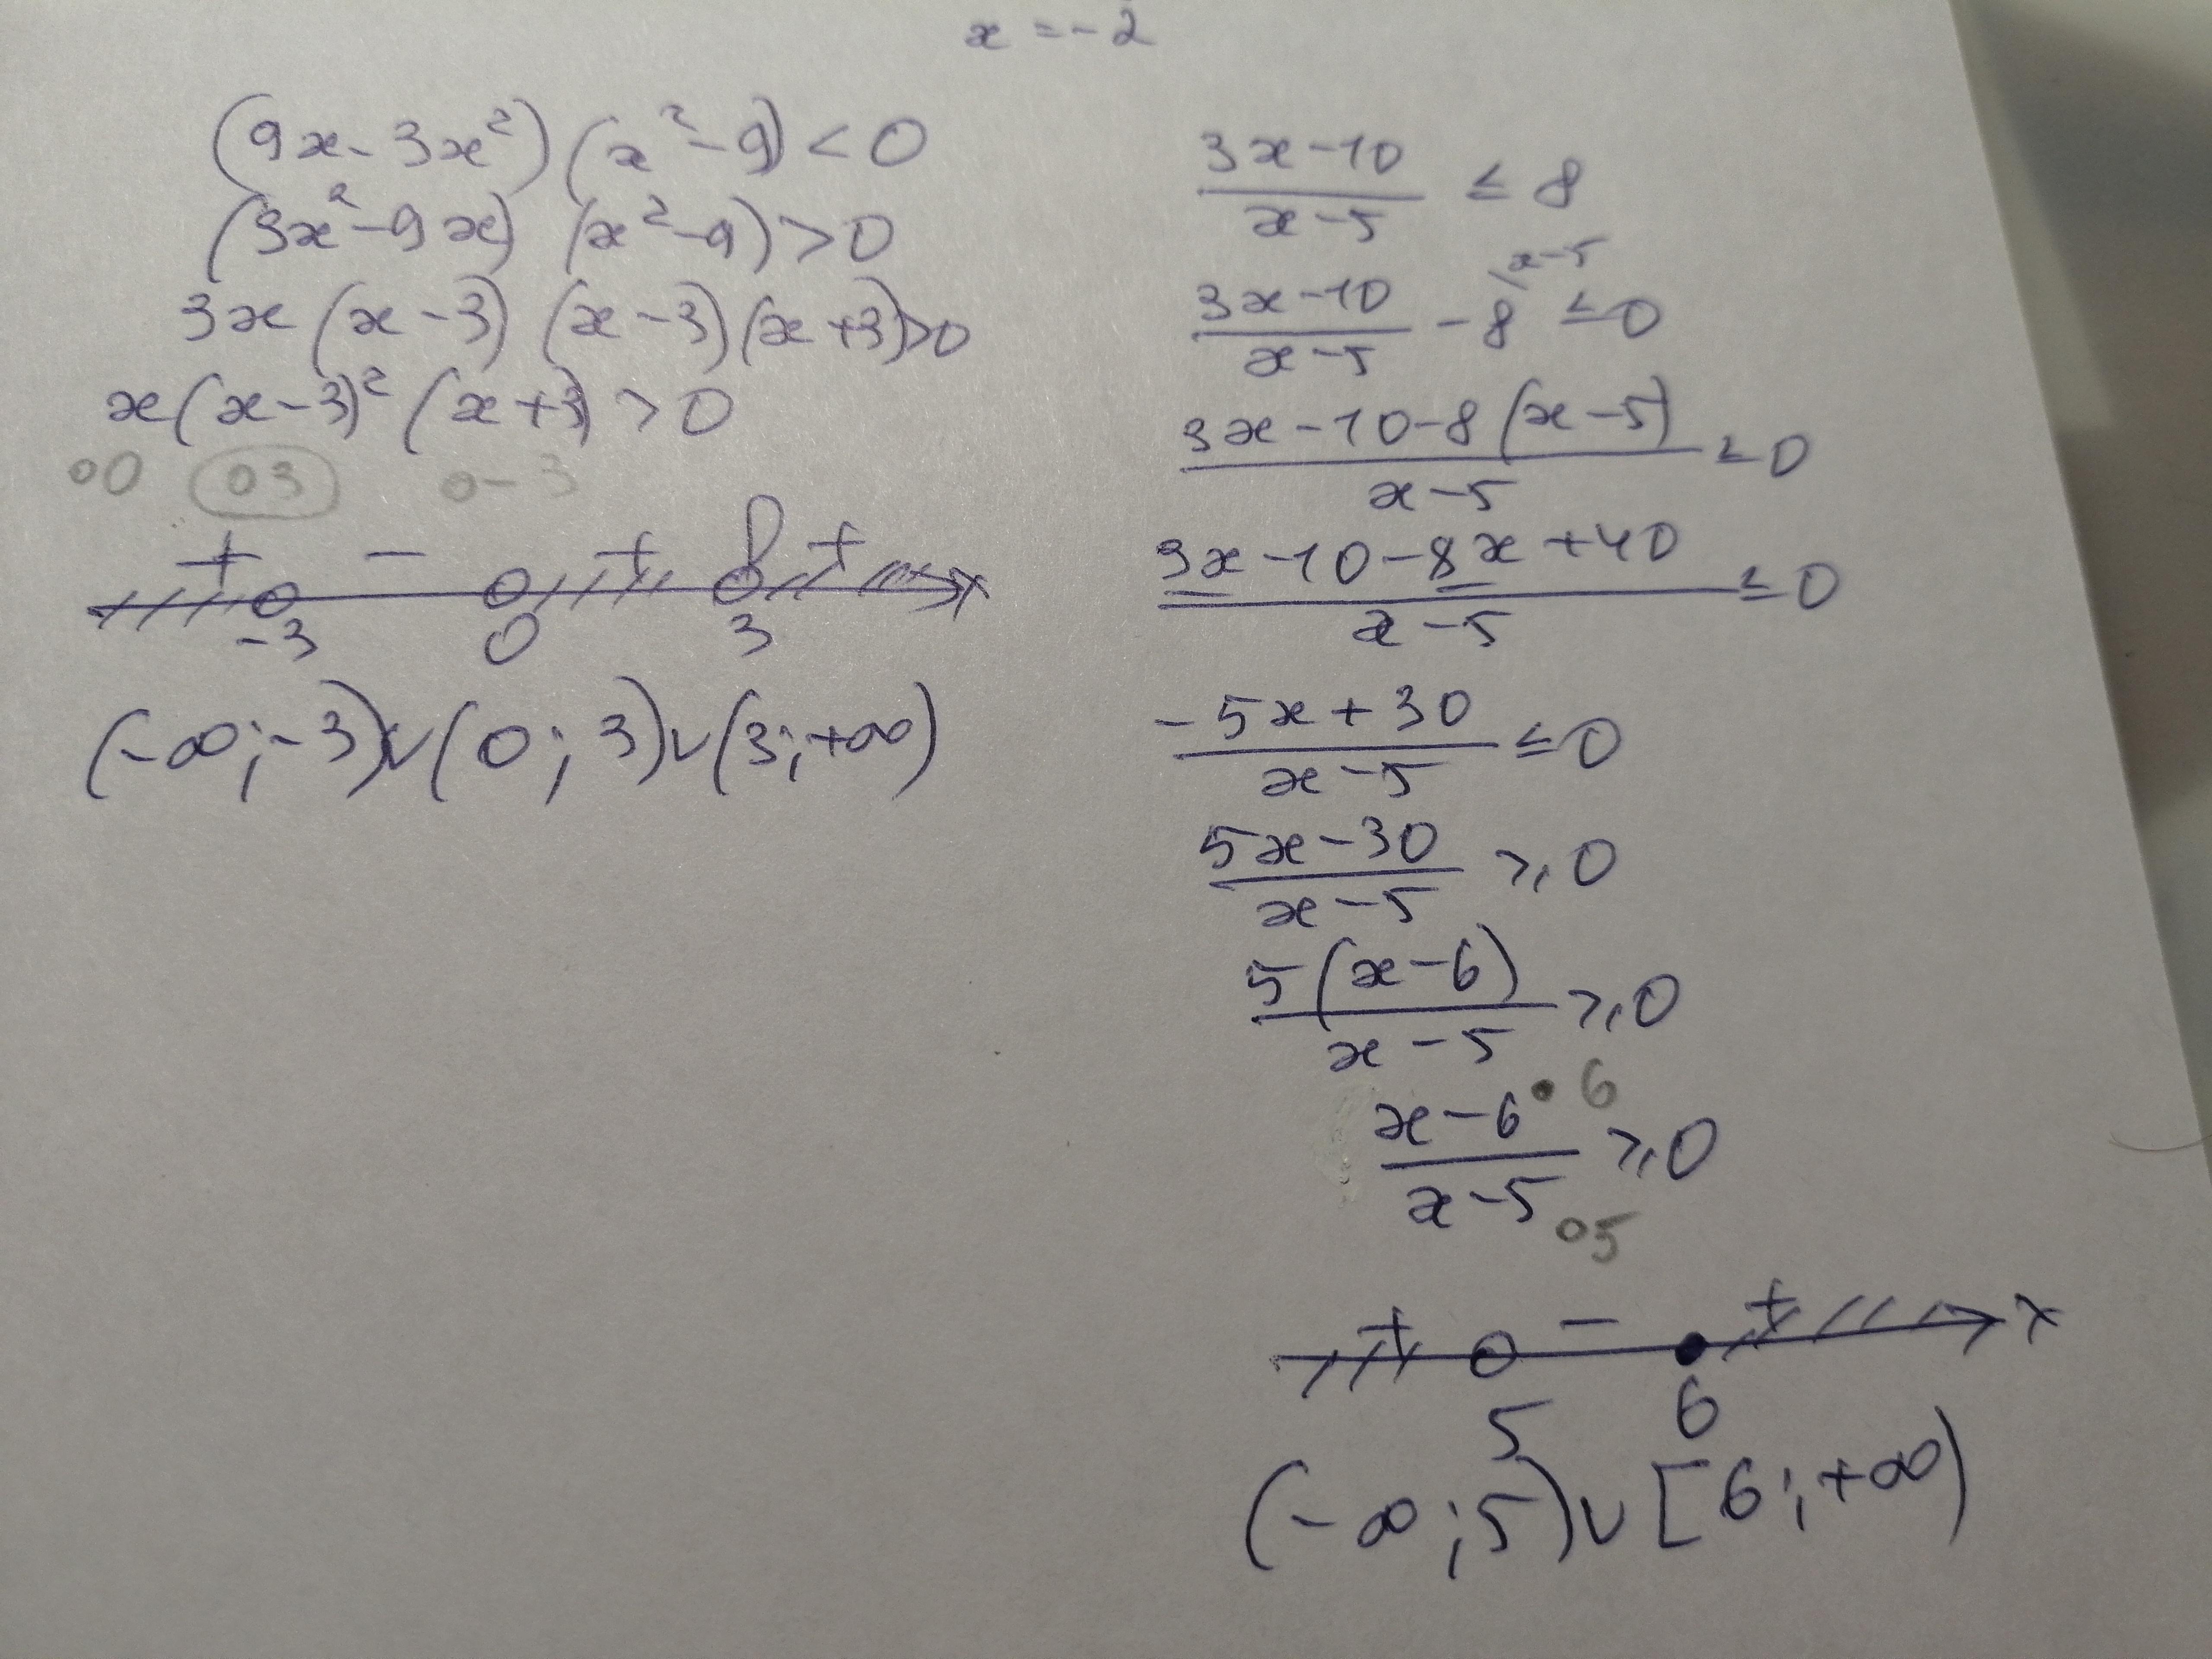 x = -2
(9x - 3x²)(x² - 9) < 0
(3x² - 9x) (x² - 9) > 0
3x (x - 3) (x - 3)(x + 3) > 0
x(x - 3)² (x + 3) > 0
∘0 ∘3 ∘-3
+ - + +
-3 0 3 x
(-∞; -3) ∪ (0; 3) ∪ (3; +∞)
(3x - 10)/(x - 5) ≤ 8
(3x - 10)/(x - 5) - 8 \ x - 5 ≤ 0
(3x - 10 - 8(x - 5))/(x - 5) ≤ 0
(3x - 10 - 8x + 40)/(x - 5) ≤ 0
(-5x + 30)/(x - 5) ≤ 0
(5x - 30)/(x - 5) ≥ 0
5(x - 6)/(x - 5) ≥ 0
• 6
(x - 6)/(x - 5) ≥ 0
∘5
+ - + x
5 6
(-∞; 5) ∪ [6; +∞)